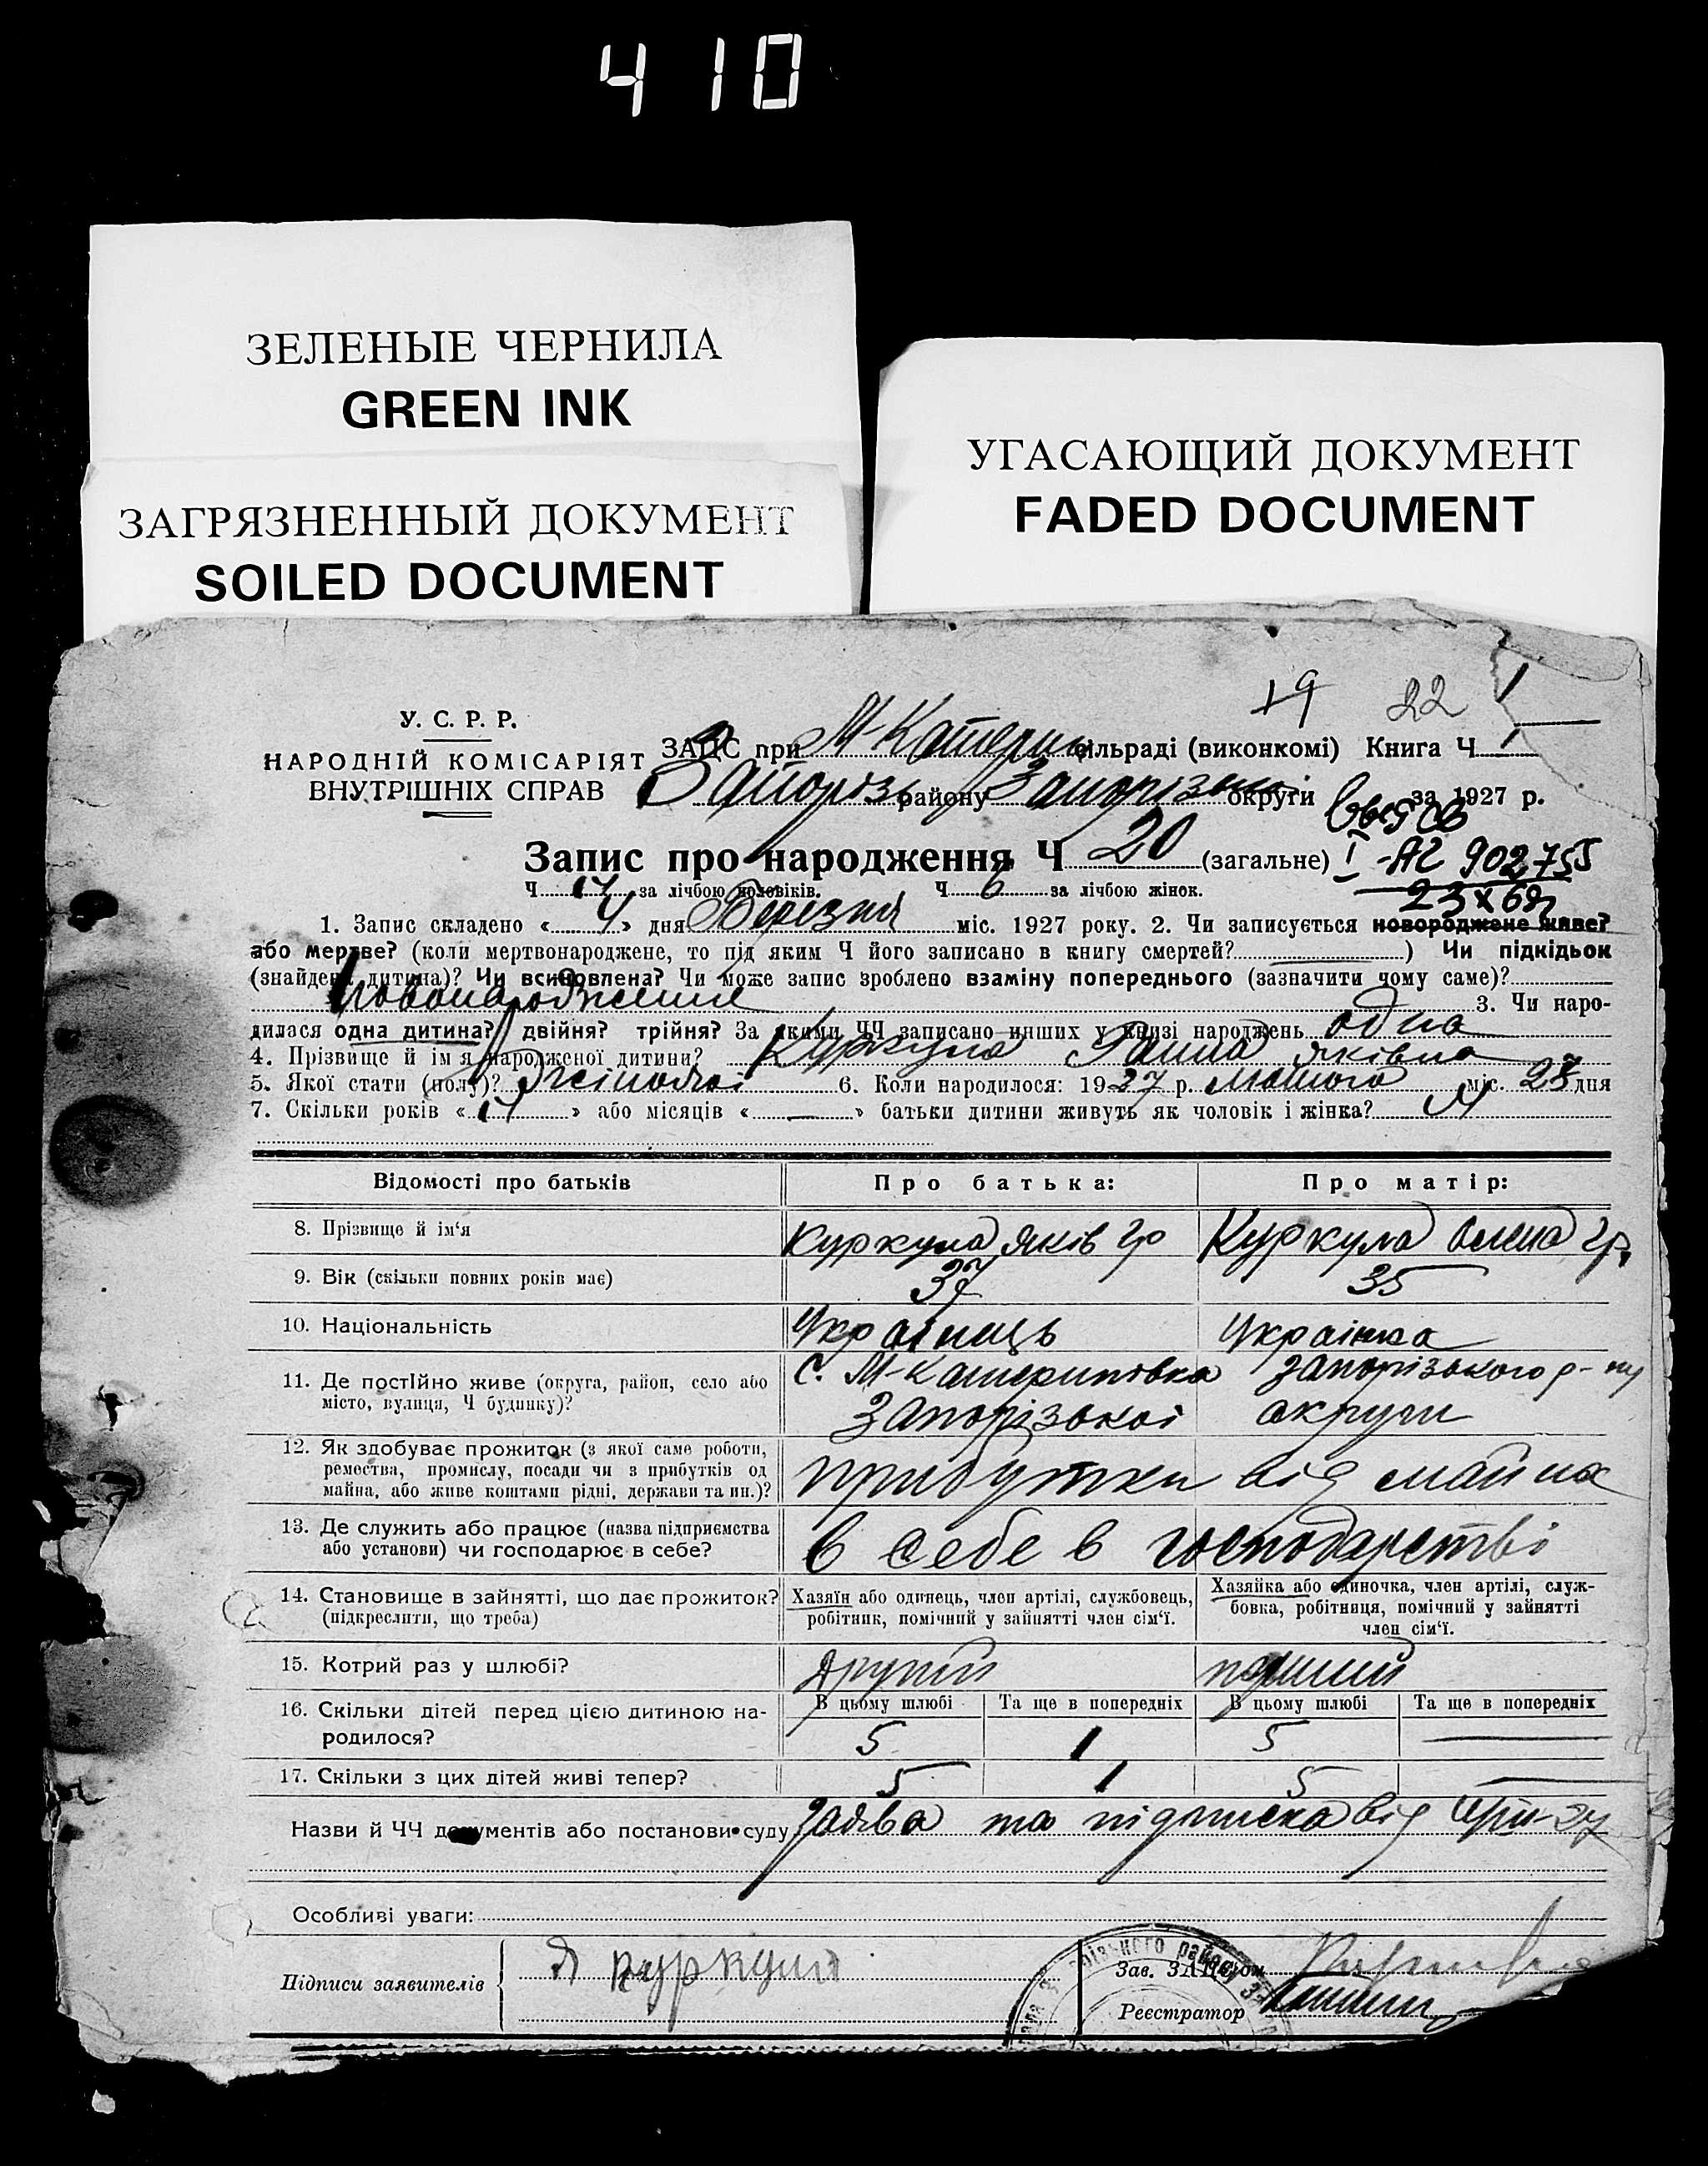 410
ЗЕЛЕНЫЕ ЧЕРНИЛА
GREEN INK
ЗАГРЯЗНЕННЫЙ ДОКУМЕНТ
SOILED DOCUMENT
УГАСАЮЩИЙ ДОКУМЕНТ
FADED DOCUMENT
19 22
У. С. Р. Р.
НАРОДНІЙ КОМІСАРІЯТ
ВНУТРІШНІХ СПРАВ
ЗАГС при М-Катерин сільраді (виконкомі) Книга Ч 1
Запорізь району Запорізькоі округи за 1927 р.
Запис про народження Ч 20 (загальне) I-АГ 902755
Ч 14 за лічбою чоловіків. Ч 6 за лічбою жінок. 23 X 69
1. Запис складено « 4 » дня Березня міс. 1927 року. 2. Чи записується новороджене живе?
або мертве? (коли мертвонароджене, то під яким Ч його записано в книгу смертей? ) Чи підкідьок
(знайдена дитина)? Чи всиновлена? Чи може запис зроблено взаміну попереднього (зазначити чому саме)?
новонароджене 3. Чи наро-
дилася одна дитина? двійня? трійня? За якими ЧЧ записано инших у книзі народжень одна
4. Прізвище й ім'я народженої дитини? Куркула Ганна Яківна
5. Якої стати (полу)? Жіночоі 6. Коли народилося: 1927 р. лютого міс. 28 дня
7. Скільки років « 14 » або місяців « — » батьки дитини живуть як чоловік і жінка? 14
Відомості про батьків Про батька: Про матір:
8. Прізвище й ім'я Куркула Яків Гр Куркула Олена Гр.
9. Вік (скільки повних років має) 37 35
10. Національність Украінець Украінка
11. Де постійно живе (округа, район, село або С. М-Катеринівка Запорізького р-ну
місто, вулиця, Ч будинку)? Запорізькоі округи
12. Як здобуває прожиток (з якої саме роботи,
ремества, промислу, посади чи з прибутків од прибутки від майна
майна, або живе коштами рідні, держави та ин.)?
13. Де служить або працює (назва підприємства в себе в господарстві
або установи) чи господарює в себе?
14. Становище в зайнятті, що дає прожиток? Хазяїн або одинець, член артілі, службовець, Хазяйка або одиночка, член артілі, служ-
(підкреслити, що треба) робітник, помічний у зайнятті член сім'ї. бовка, робітниця, помічний у зайнятті
член сім'ї.
15. Котрий раз у шлюбі? другий перший
16. Скільки дітей перед цією дитиною на- В цьому шлюбі Та ще в попередніх В цьому шлюбі Та ще в попередніх
родилося? 5 1 5 —
17. Скільки з цих дітей живі тепер? 5 1 5 —
Назви й ЧЧ документів або постанови суду заява та підписка від
Особливі уваги:
Підписи заявителів Я Куркула
Зав. ЗАГС'ом
Реєстратор